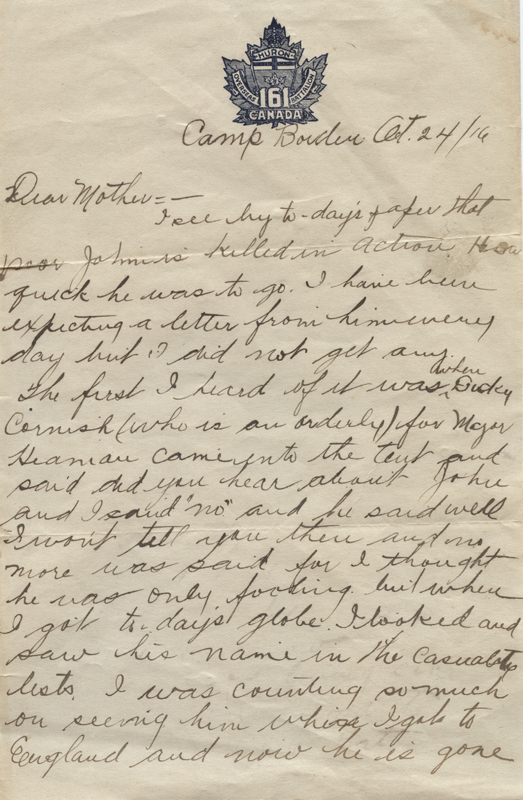 HURON
OVERSEAS BATTALION
161
CANADA
Camp Borden Oct. 24/16
Dear Mother=-
I see by to-day's paper that
poor John is killed in action. How
quick he was to go. I have been
expecting a letter from him every
day but I did not get any.
The first I heard of it was when Dicky
Cornish (who is an orderly) for Major
Heaman came into the tent and
said did you hear about John
and I said "no" and he said well
I won't tell you then and no
more was said for I thought
he was only fooling but when
I got to-day's globe. I looked and
saw his name in the casualty
lists. I was counting so much
on seeing him when I got to
England and now he is gone